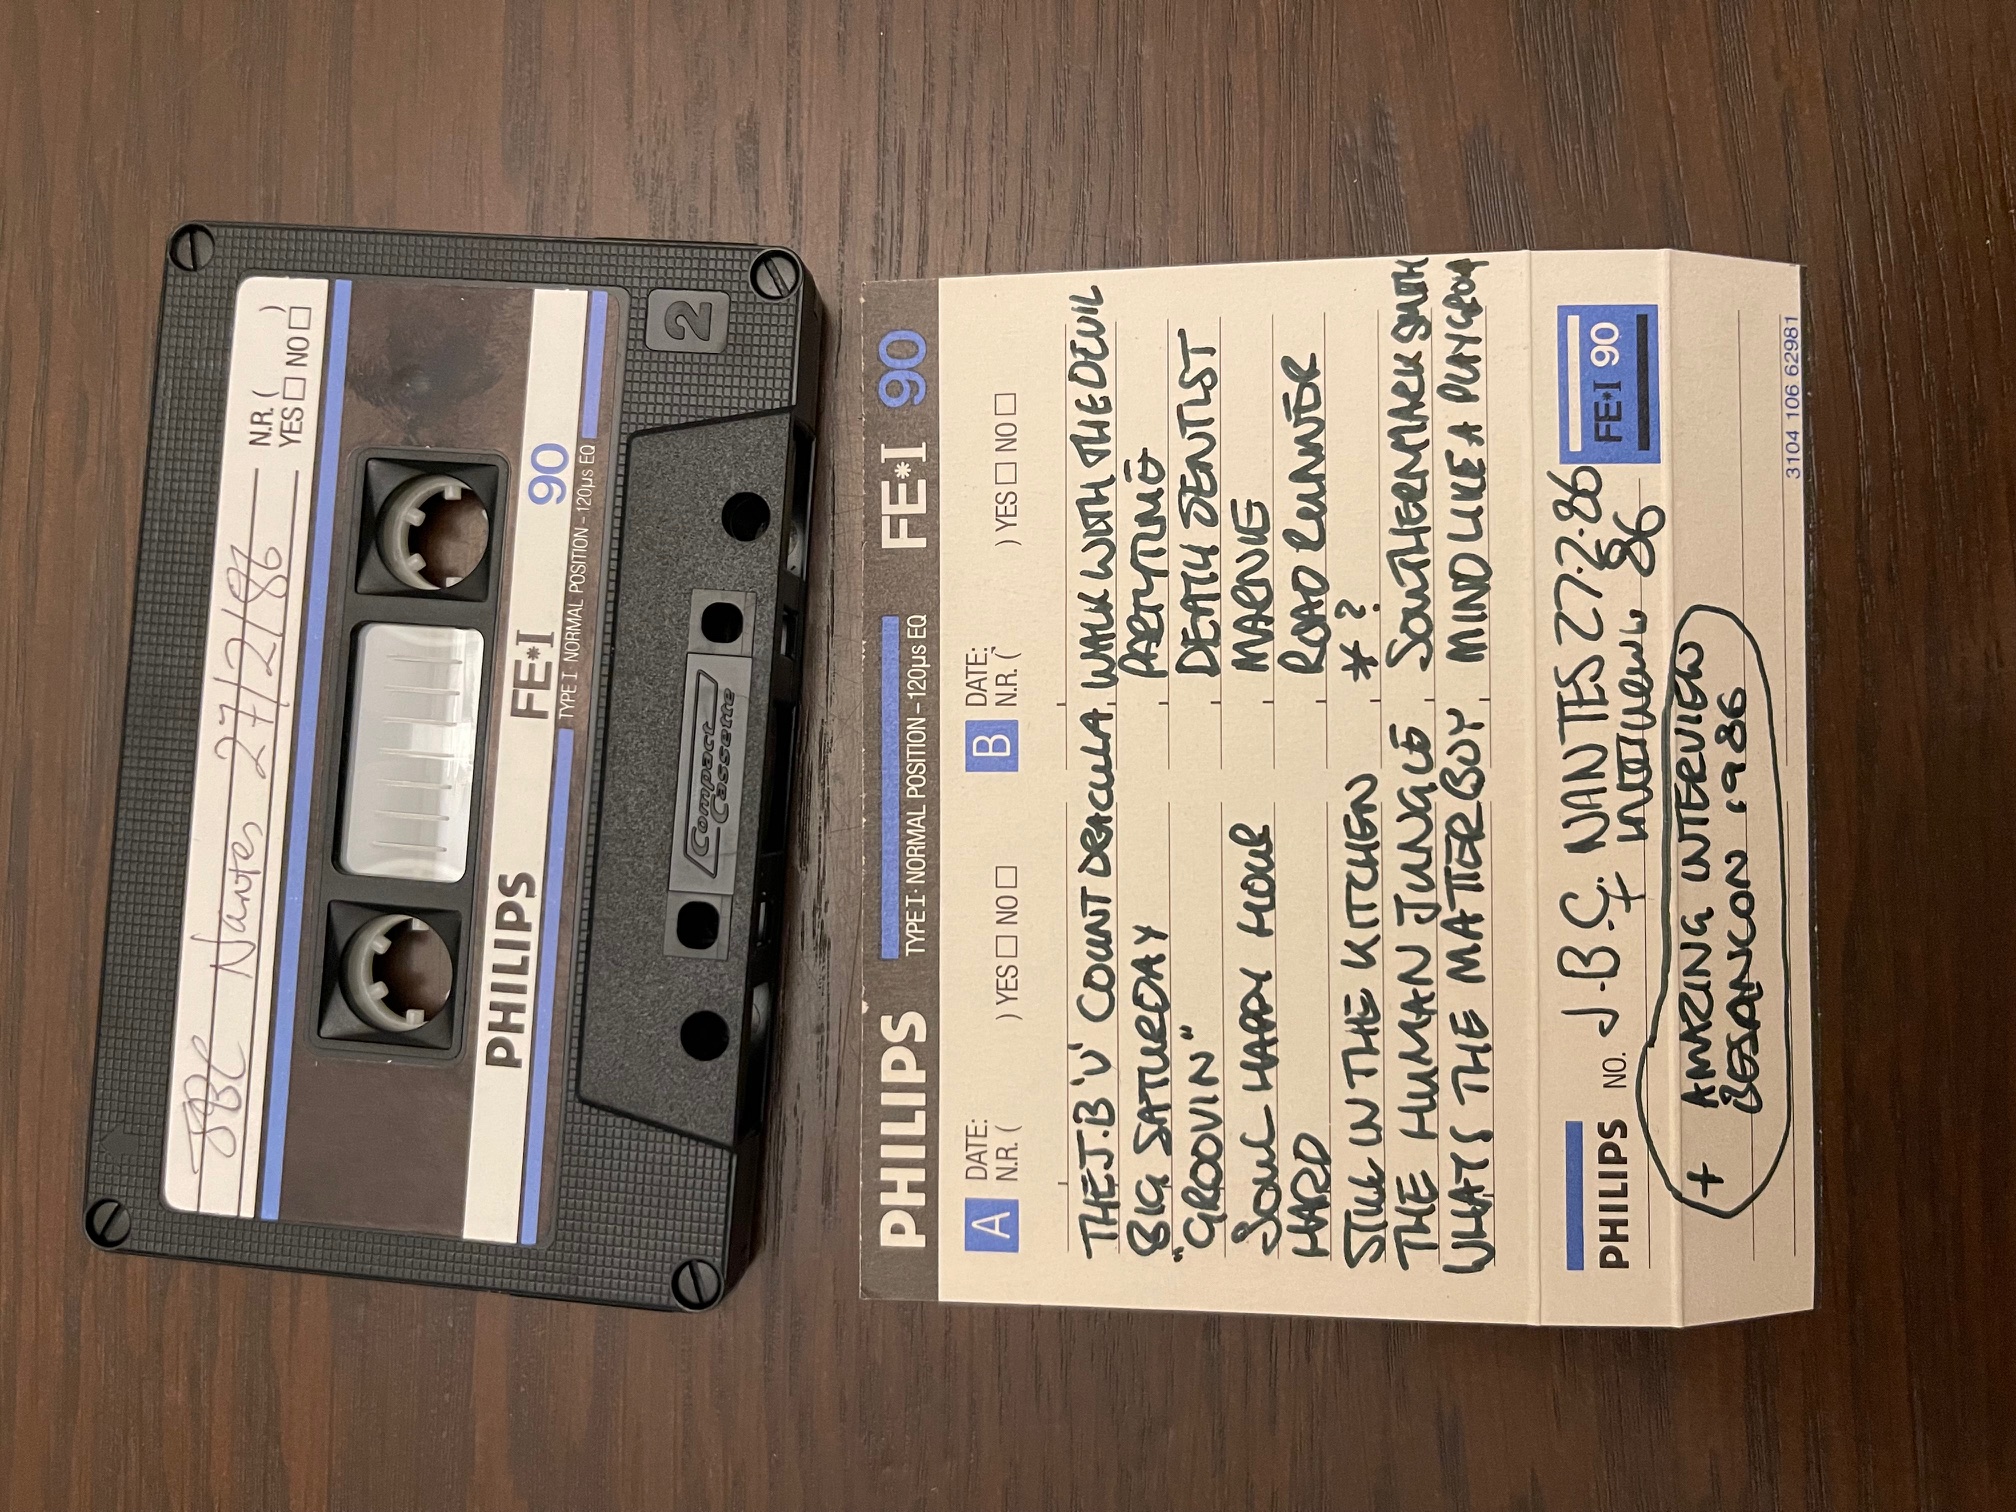 JBC Nantes 27/2/86
N.R. ( )
YES NO
PHILIPS FE*I 90
TYPE I NORMAL POSITION - 120µs EQ
2
Compact
Cassette
PHILIPS FE*I 90
TYPE I · NORMAL POSITION - 120µs EQ
A DATE:
N.R. ( ) YES NO
B DATE:
N.R. ( ) YES NO
THE J.B 'V' COUNT DRACULA
BIG SATURDAY
"GROOVIN"
SOUL HAPPY HOUR
HARD
STILL IN THE KITCHEN
THE HUMAN JUNGLE
WHATS THE MATTER BOY
WALK WITH THE DEVIL
PARTYTIME
DEATH DENTIST
MARNIE
ROAD RUNNER
* ?
SOUTHERN MARK SMITH
MIND LIKE A PLAYGROU
PHILIPS NO. J.B.C. NANTES 27.2.86
+ INTERVIEW 86
FE*I 90
+ AMAZING INTERVIEW
BESANCON 1986
3104 106 62981